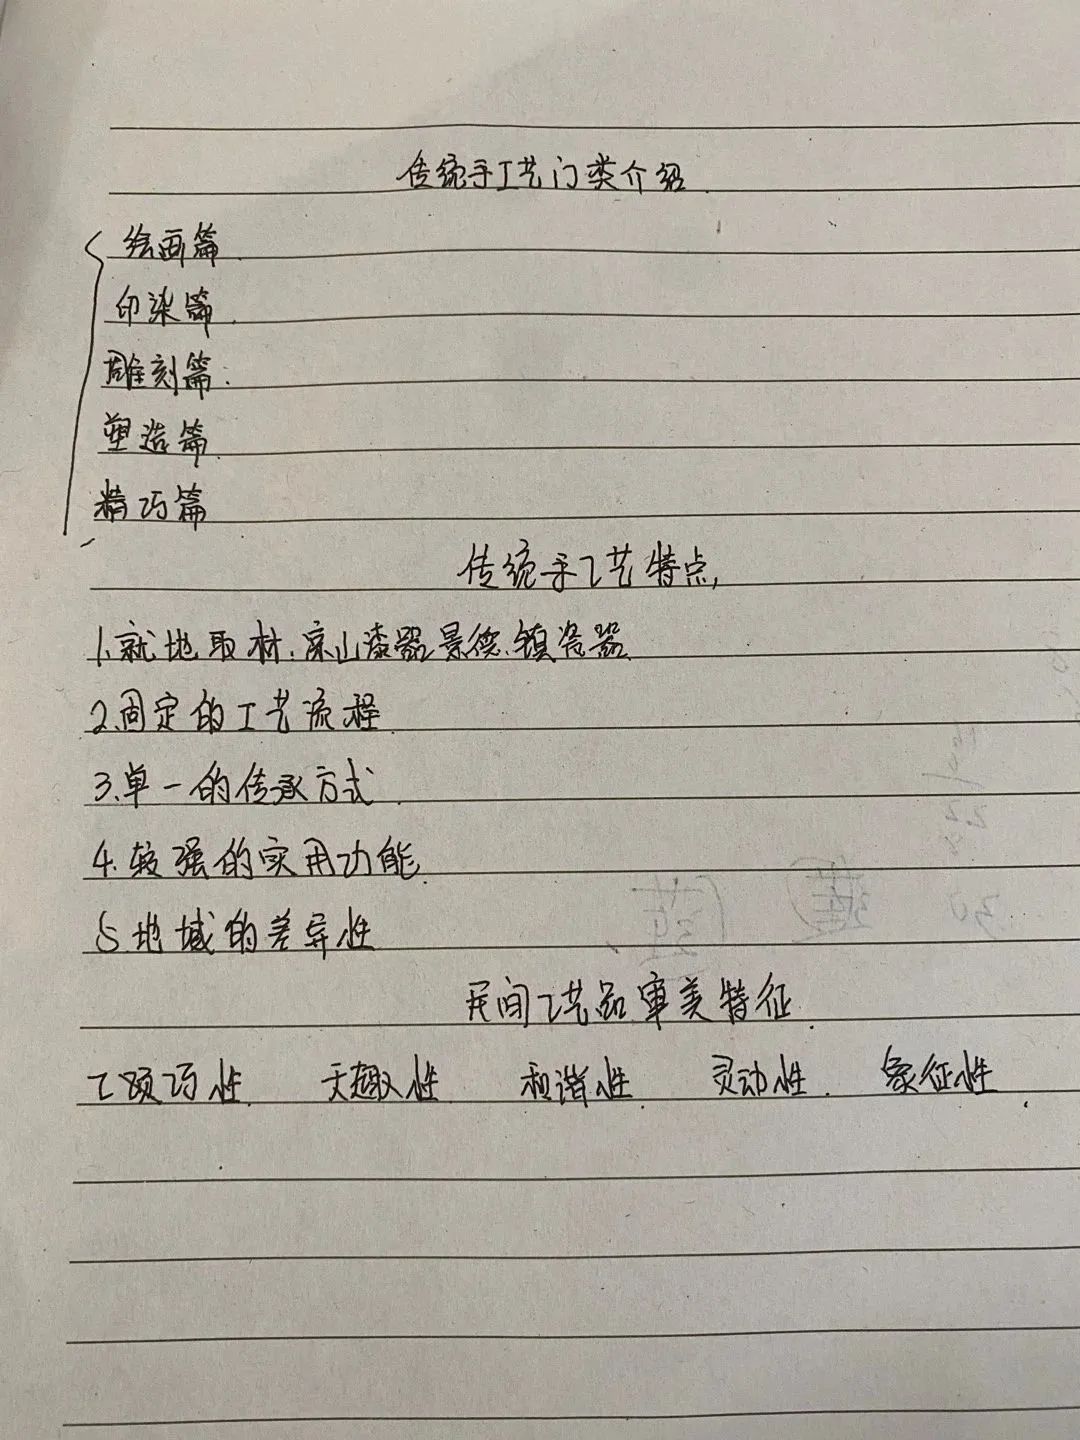 传统手工艺门类介绍
绘画篇
印染篇
雕刻篇:
塑造篇
精巧篇
传统手工艺特点
1.就地取材:山漆器景德镇瓷器
2.固定的工艺流程
3.单一的传承方式
4.较强的实用功能
5.地域的差异性
民间工艺品审美特征
巧性 天趣性 和谐性 灵动性 象征性